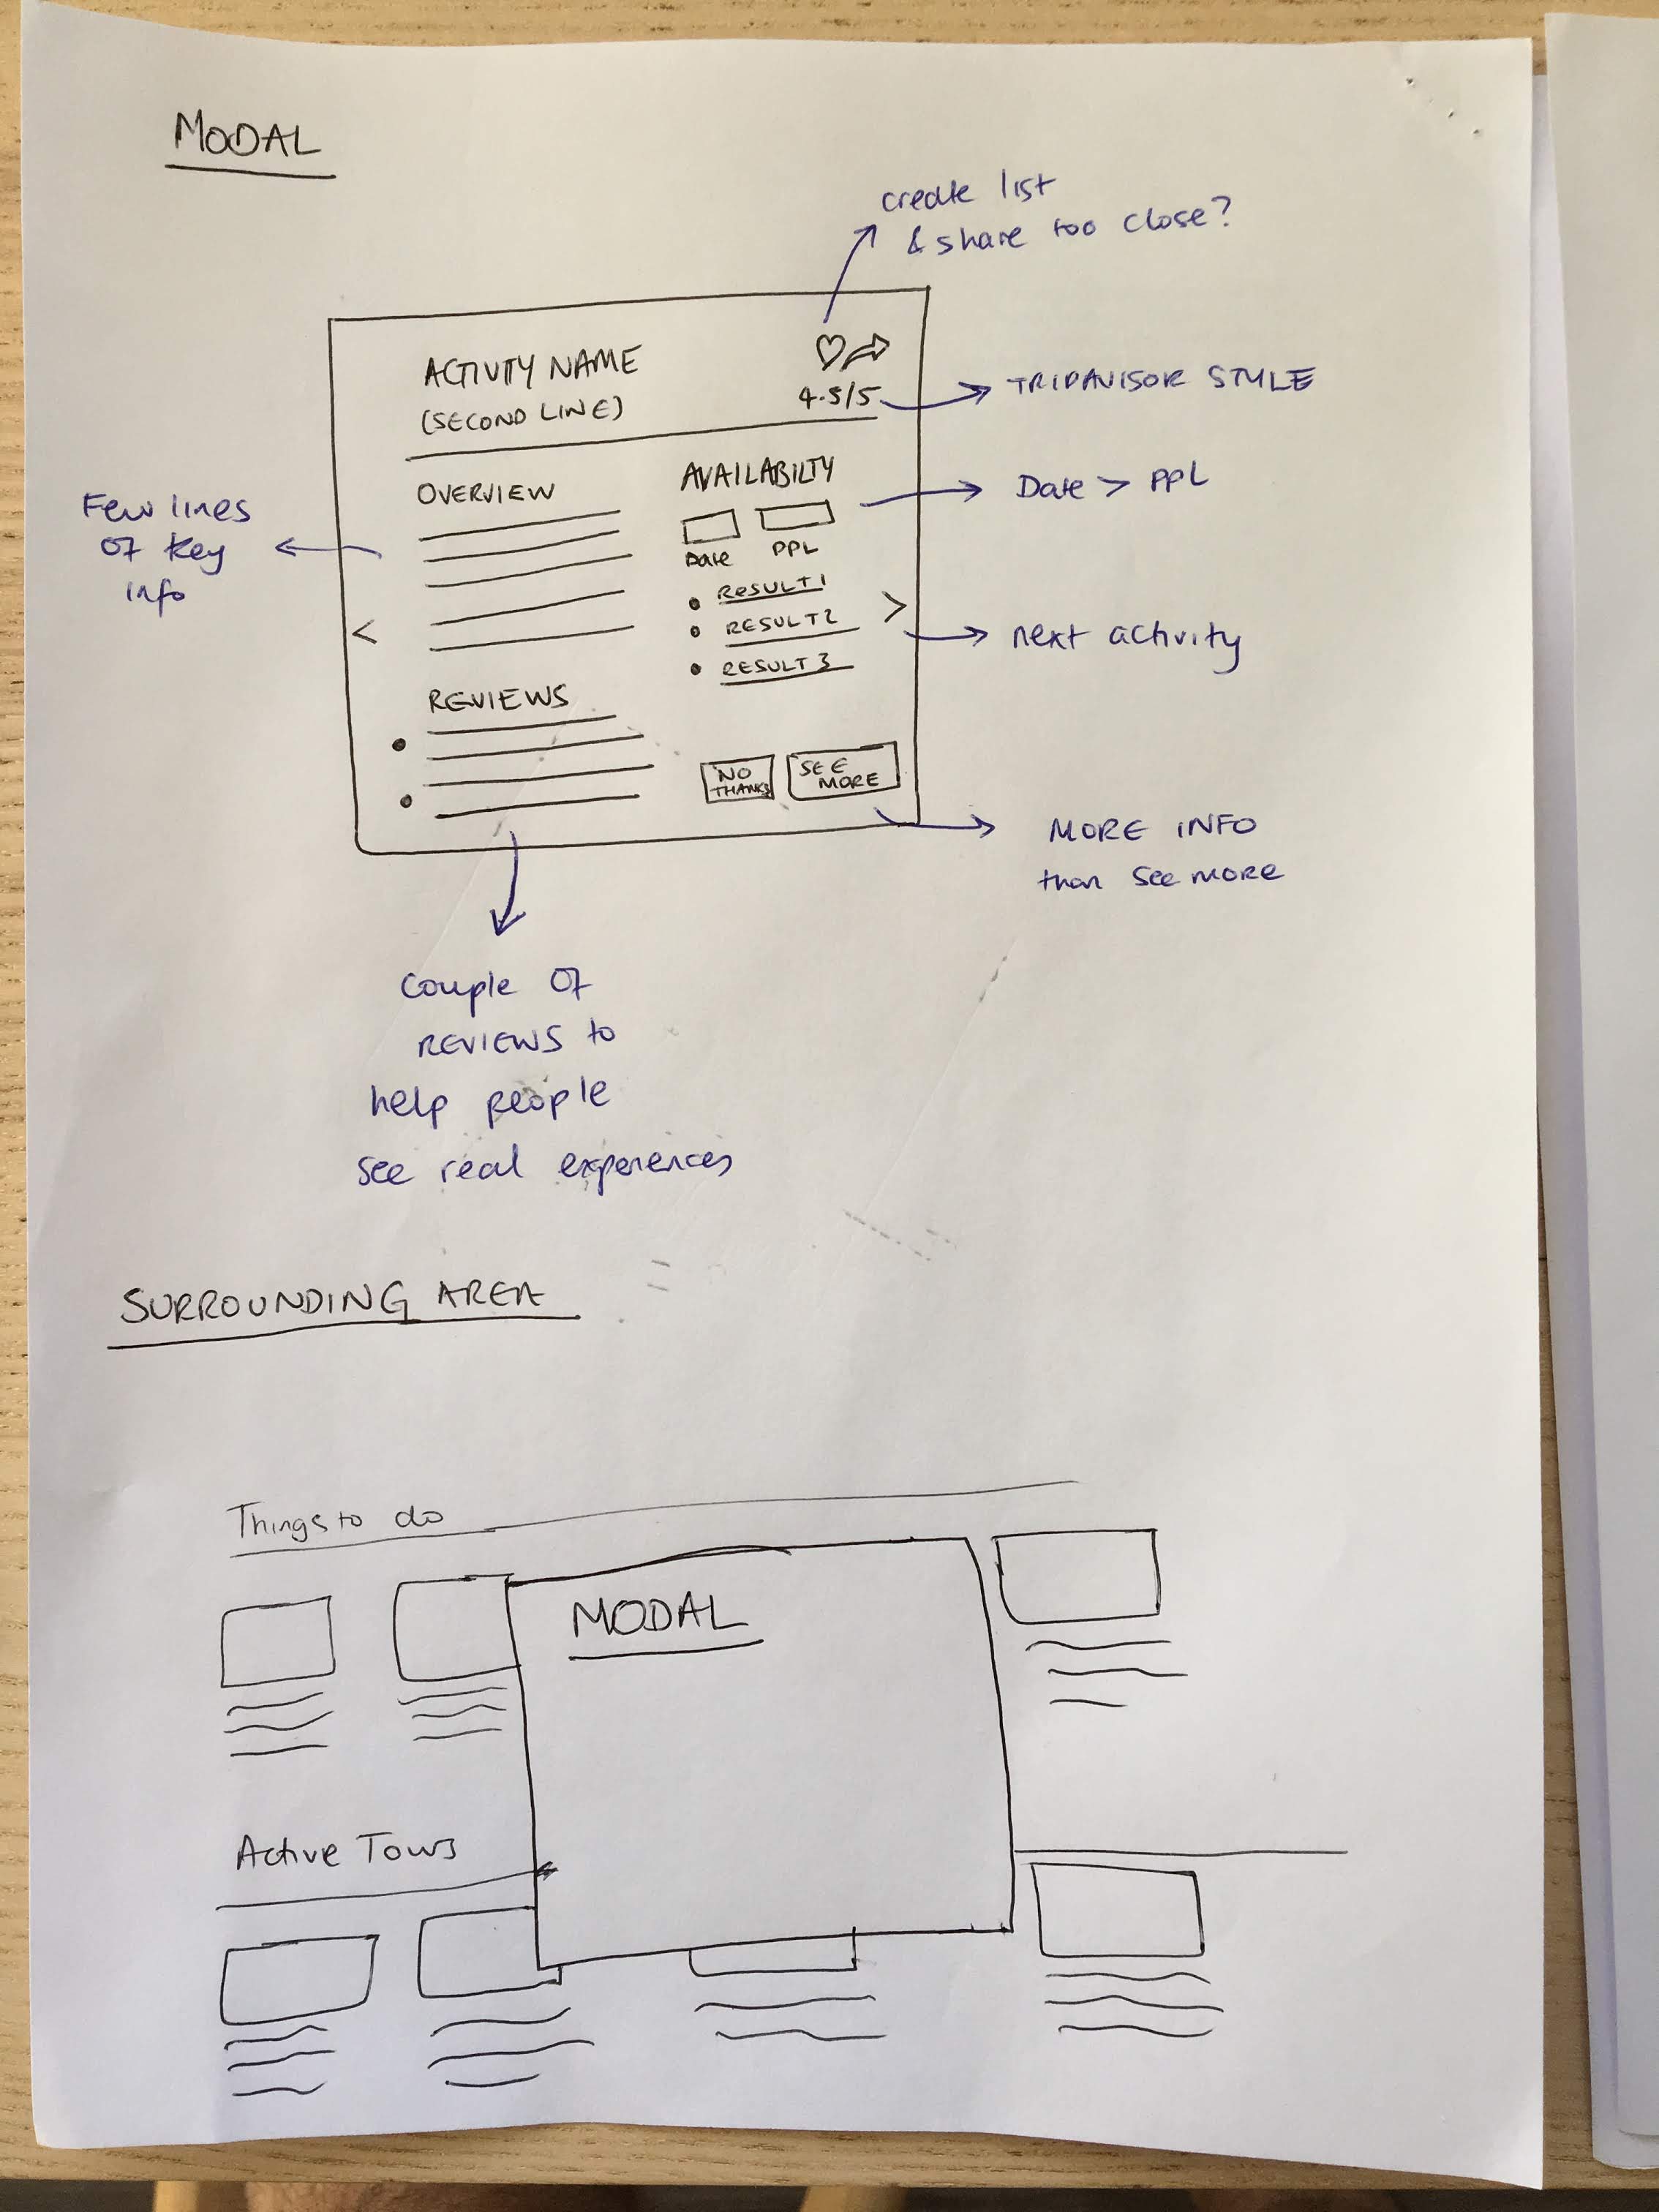 MODAL
create list
& share too close?
ACTIVITY NAME
(SECOND LINE)
4.5/5
TRIPAVISOR STYLE
OVERVIEW
AVAILABILTY
Date
PPL
Date > PPL
Few lines
of key
info
RESULT 1
RESULT 2
RESULT 3
<
>
next activity
REVIEWS
NO
THANKS
SEE
MORE
MORE INFO
than see more
Couple of
REVIEWS to
help people
see real experiences
SURROUNDING AREA
Things to do
MODAL
Active Tours